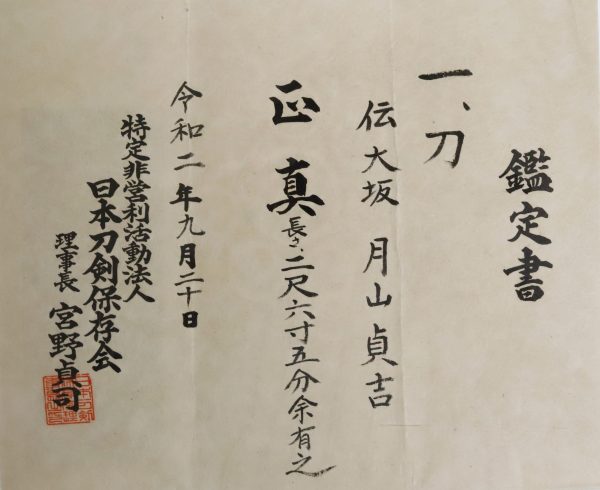 鑑定書
一、刀
伝大坂 月山貞吉
正真長さ、二尺六寸五分余有之
令和二年九月二十日
特定非営利活動法人
日本刀剣保存会
理事長 宮野貞司